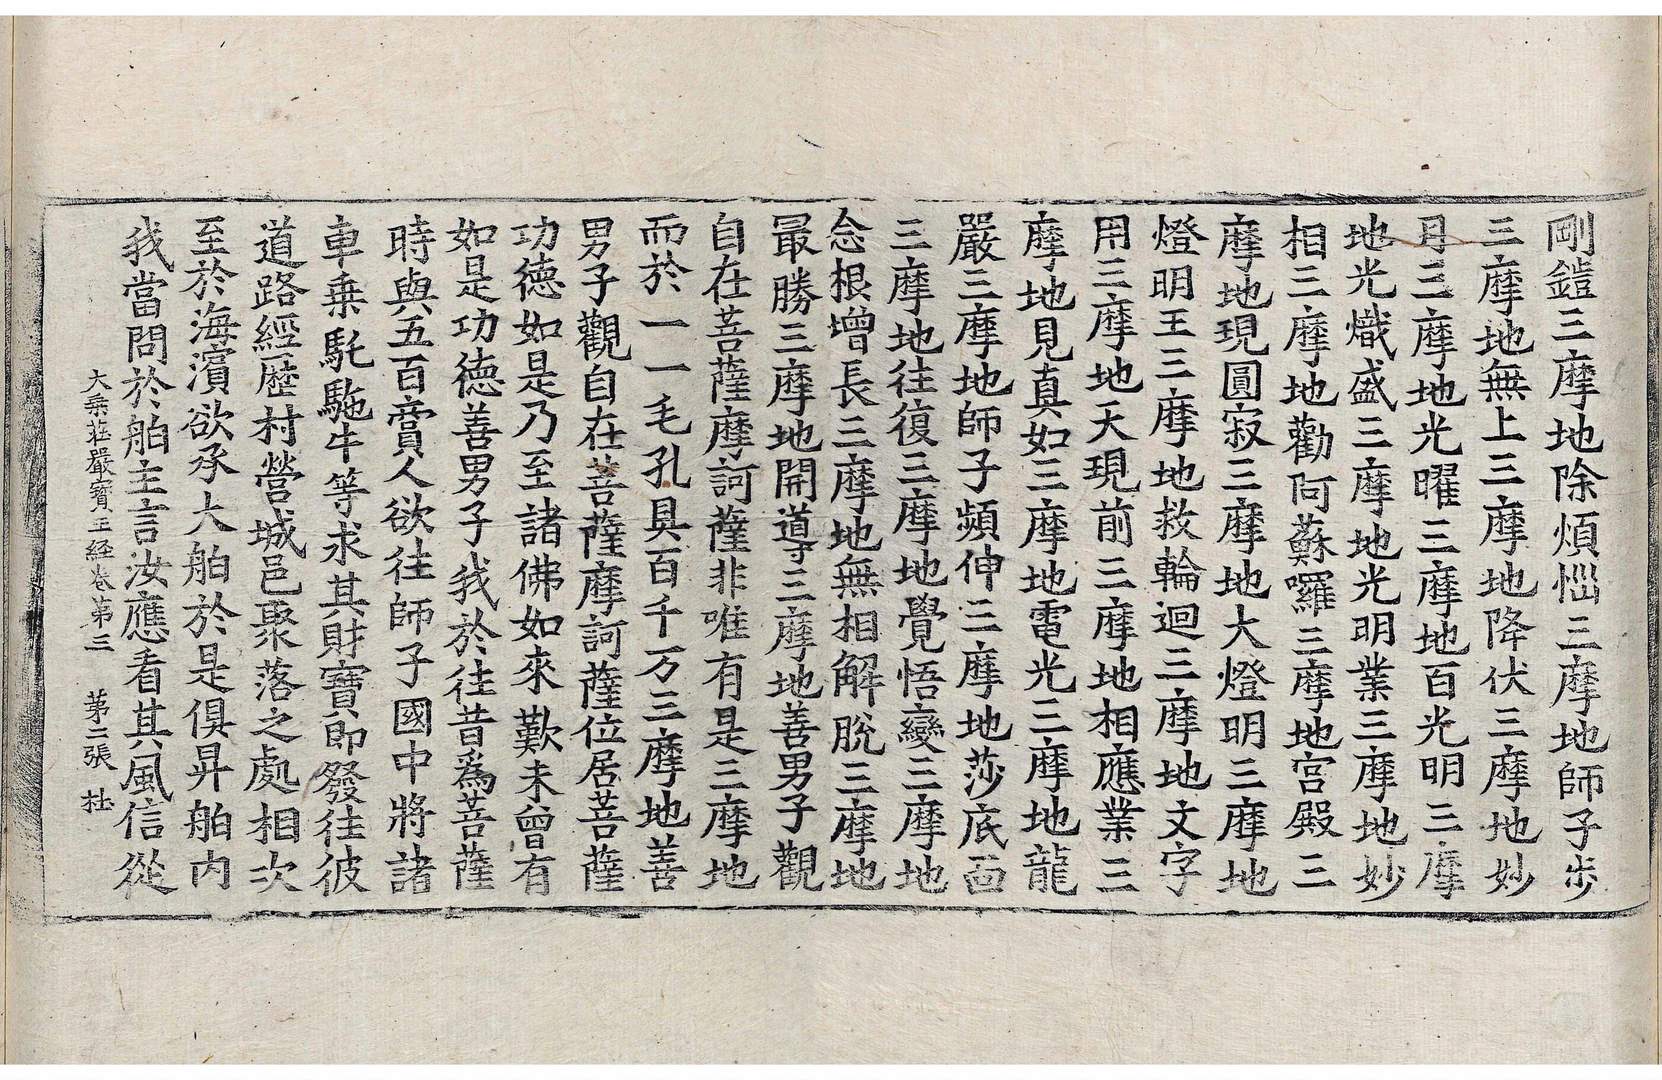 剛鎧三摩地除煩惱三摩地師子步
三摩地無上三摩地降伏三摩地妙
月三摩地光曜三摩地百光明三摩
地光熾盛三摩地光明業三摩地妙
相三摩地勸阿蘇囉三摩地宮殿三
摩地現圓寂三摩地大燈明三摩地
燈明王三摩地救輪迴三摩地文字
用三摩地天現前三摩地相應業三
摩地見真如三摩地電光三摩地龍
嚴三摩地師子頻伸三摩地莎底面
三摩地往復三摩地覺悟變三摩地
念根增長三摩地無相解脫三摩地
最勝三摩地開導三摩地善男子觀
自在菩薩摩訶薩非唯有是三摩地
而於一一毛孔具百千万三摩地善
男子觀自在菩薩摩訶薩位居菩薩
功德如是乃至諸佛如來歎未曾有
如是功德善男子我於往昔爲菩薩
時與五百賞人欲往師子國中將諸
車乗馲駞牛等求其財寶即發往彼
道路經歷村營城邑聚落之處相次
至於海濱欲承大舶於是俱昇舶内
我當問於舶主言汝應看其風信從
大乗莊嚴寶王経卷第三　第二張　杜